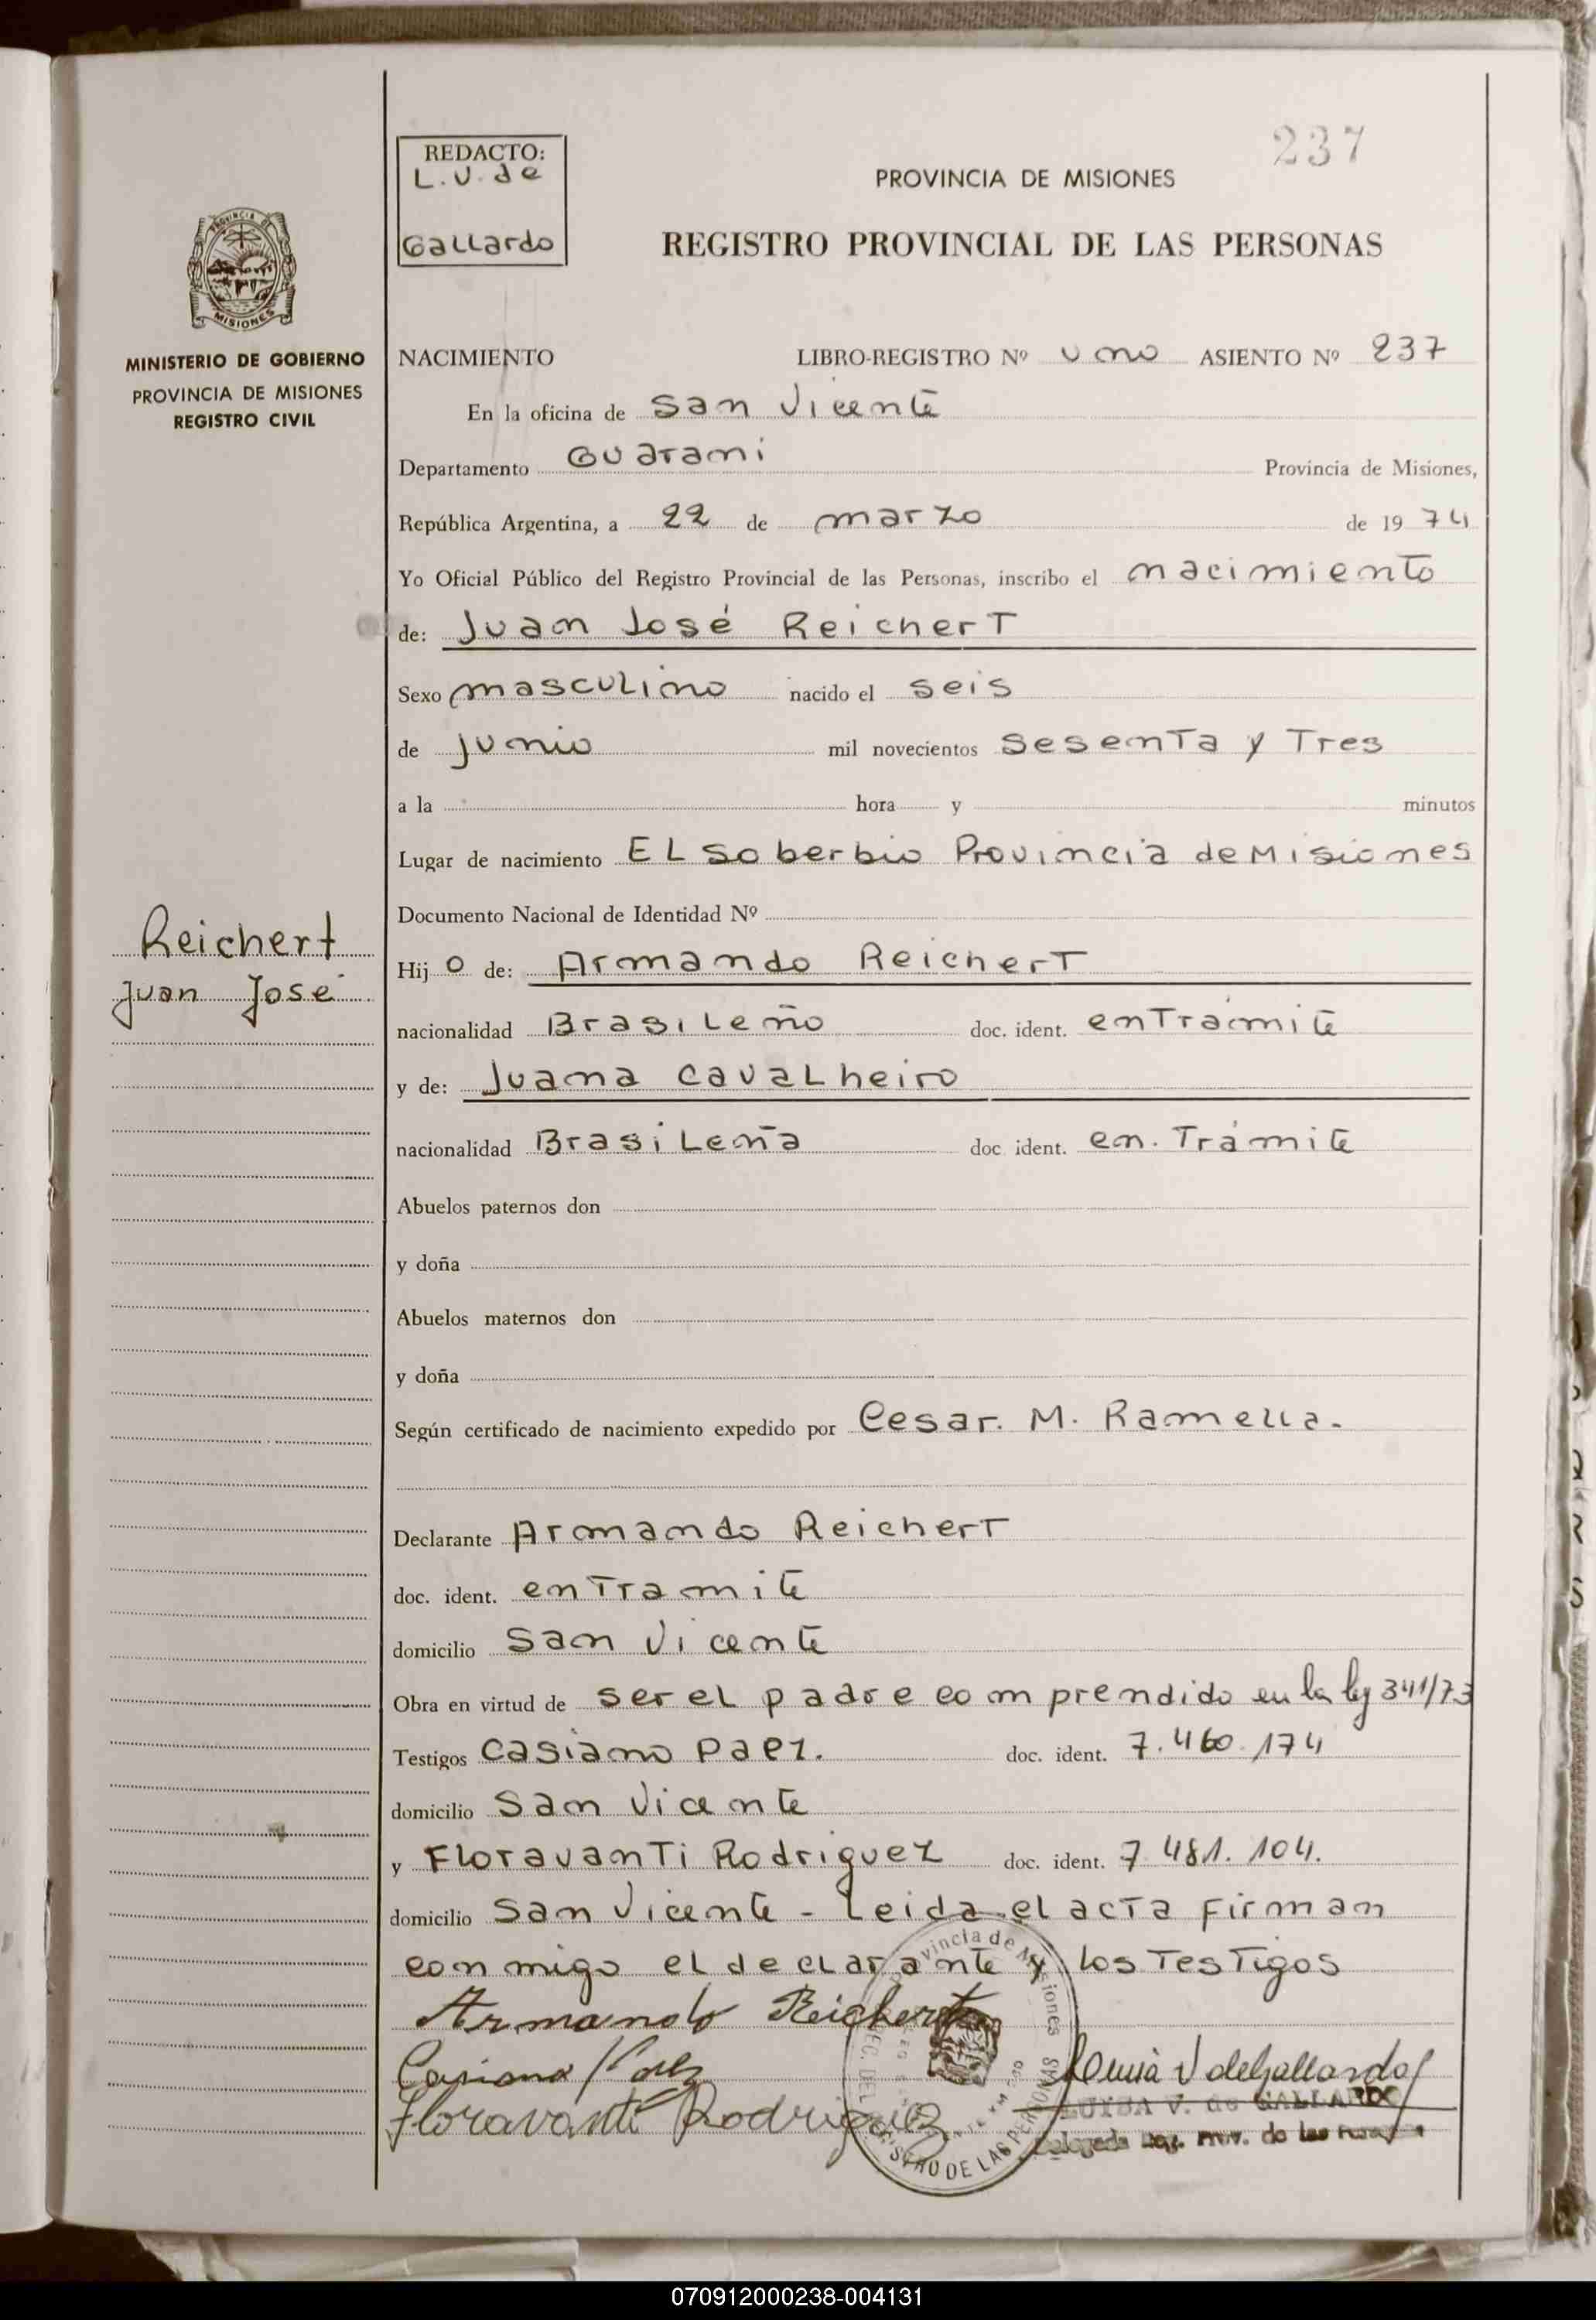 237
REDACTO:
L.V. de
Gallardo
PROVINCIA DE MISIONES
REGISTRO PROVINCIAL DE LAS PERSONAS
MISIONES
MINISTERIO DE GOBIERNO
PROVINCIA DE MISIONES
REGISTRO CIVIL
NACIMIENTO LIBRO-REGISTRO Nº uno ASIENTO Nº 237
En la oficina de San Vicente
Departamento Guarani Provincia de Misiones,
República Argentina, a 22 de marzo de 19 74
Yo Oficial Público del Registro Provincial de las Personas, inscribo el nacimiento
de: Juan José Reichert
Sexo masculino nacido el seis
de junio mil novecientos sesenta y Tres
a la hora y minutos
Lugar de nacimiento El soberbio Provincia de Misiones
Documento Nacional de Identidad Nº
Reichert
Juan José
Hij o de: Armando Reichert
nacionalidad Brasileño doc. ident. en Trámite
y de: Juana Cavalheiro
nacionalidad Brasileña doc. ident. en. Trámite
Abuelos paternos don
y doña
Abuelos maternos don
y doña
Según certificado de nacimiento expedido por Cesar. M. Ramella.
Declarante Armando Reichert
doc. ident. en Tramite
domicilio San Vicente
Obra en virtud de ser el padre comprendido en la ley 341/73
Testigos Casiano Paez. doc. ident. 7.460.174
domicilio San Vicente
y Floravanti Rodriguez doc. ident. 7 481.104.
domicilio San Vicente - Leida el acta firman
conmigo el declarante y los Testigos
Armando Reichert
Casiano Paez
Floravanti Rodriguez
V de Gallardo
LUYSA V. de GALLARDO
Delegada Reg. Prov. de las Personas
070912000238-004131